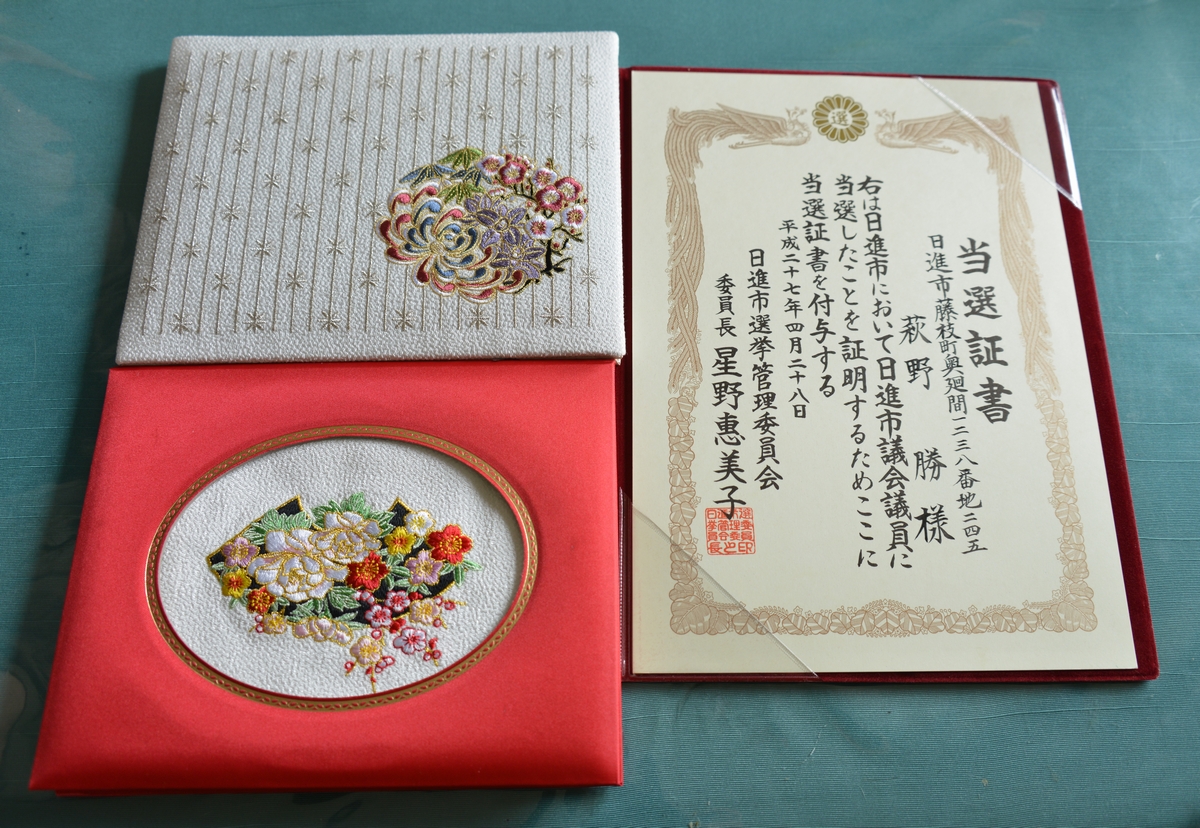 選
当選証書
日進市藤枝町奥廻間一二三八番地二四五
萩野勝様
右は日進市において日進市議会議員に
当選したことを証明するためここに
当選証書を付与する
平成二十七年四月二十八日
日進市選挙管理委員会
委員長 星野惠美子